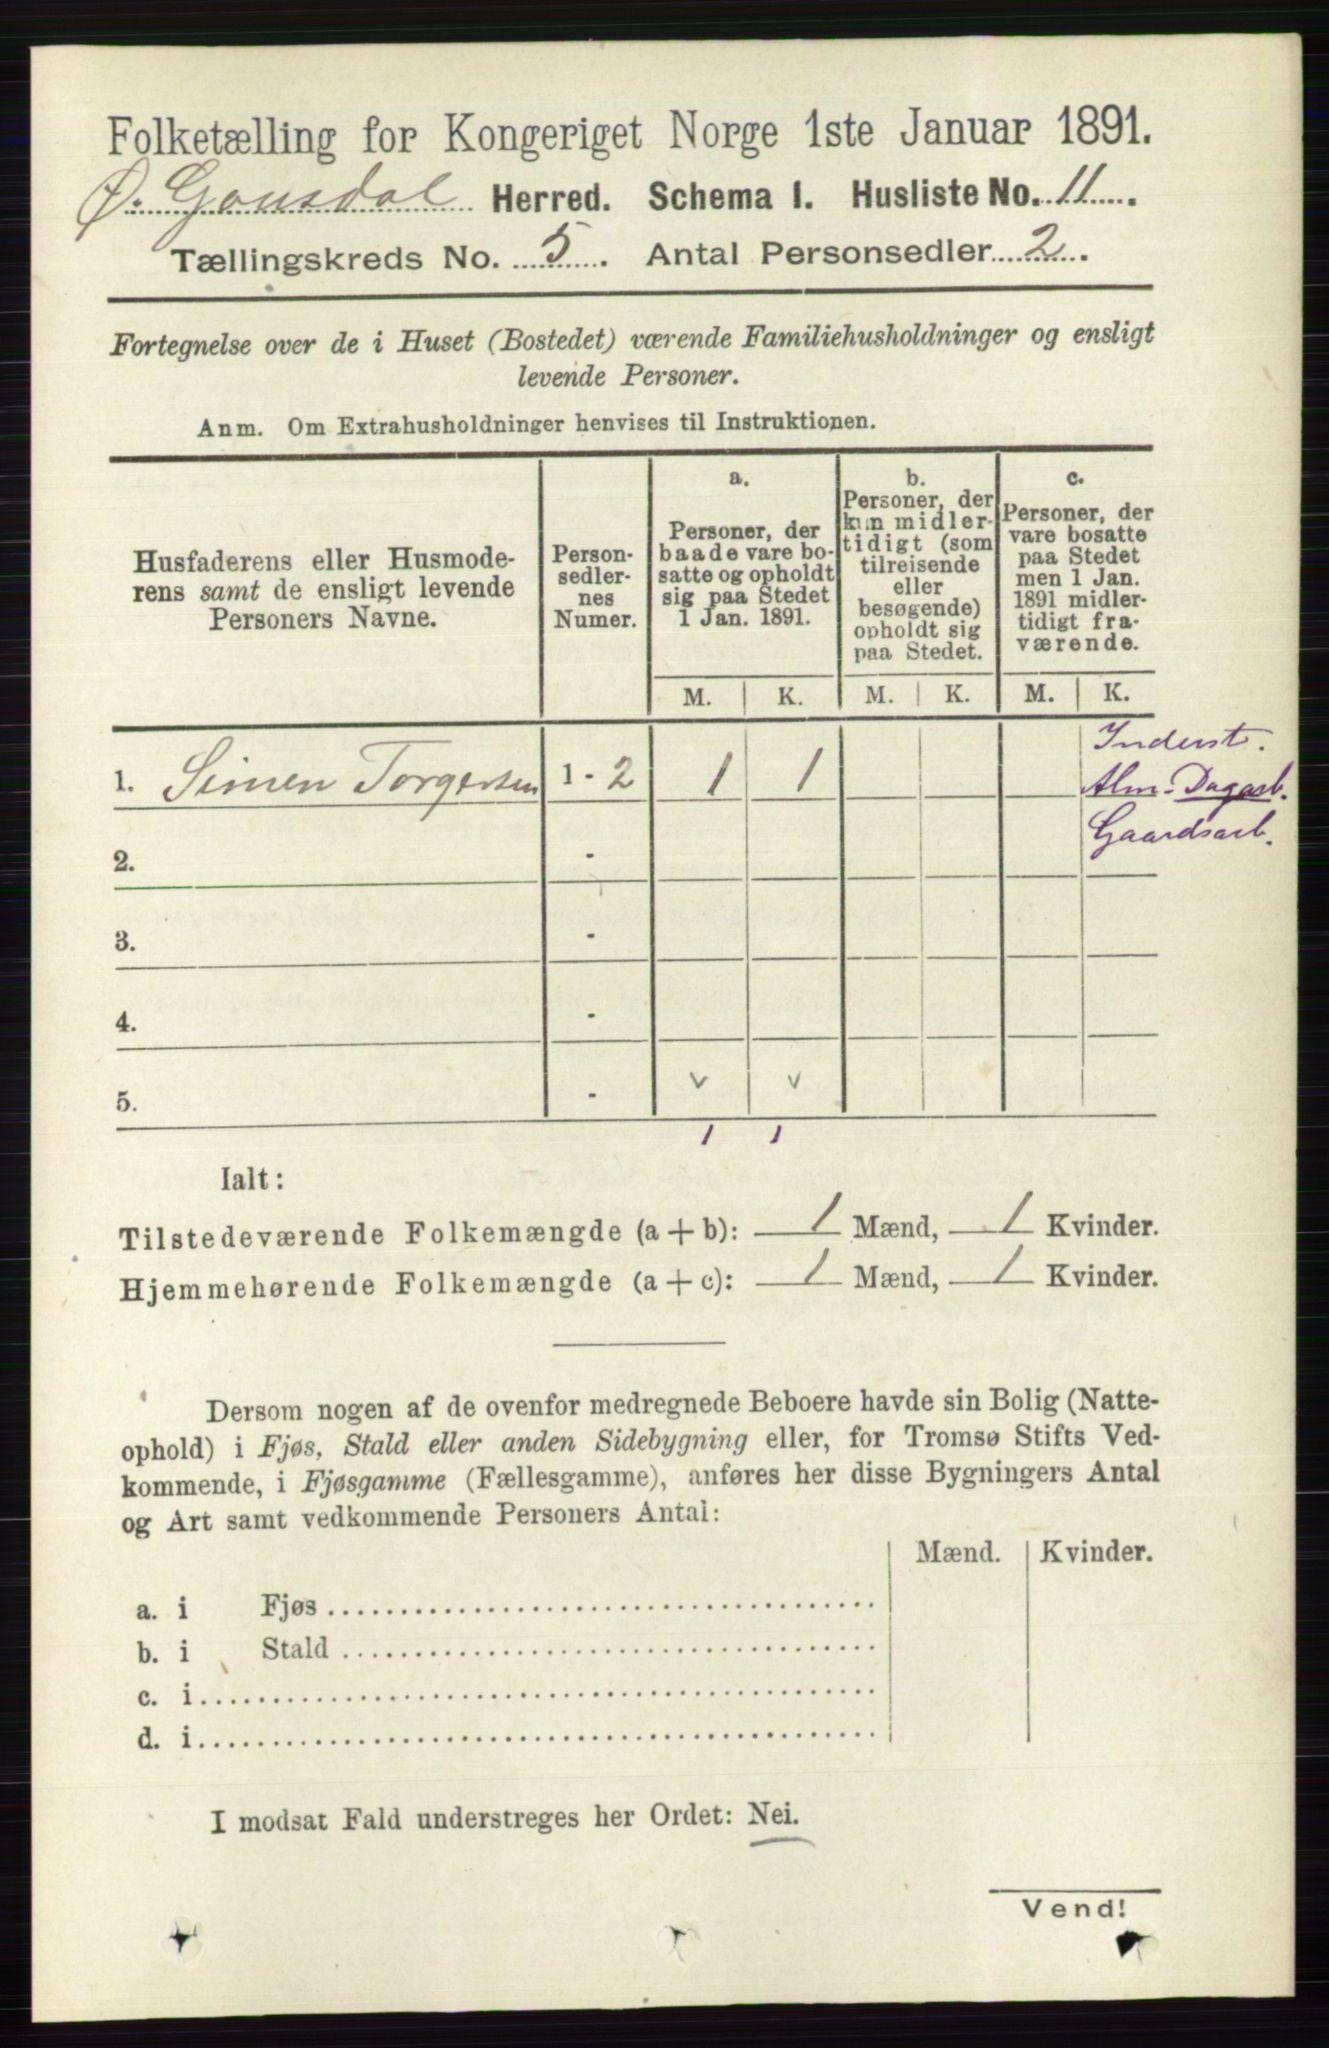 Folketælling for Kongeriget Norge 1ste Januar 1891.
Ø. Gausdal Herred. Schema I. Husliste No. 11.
Tællingskreds No. 5. Antal Personsedler 2.
Fortegnelse over de i Huset (Bostedet) værende Familiehusholdninger og ensligt
levende Personer.
Anm. Om Extrahusholdninger henvises til Instruktionen.
Husfaderens eller Husmode-
rens samt de ensligt levende
Personers Navne.
Person-
sedler-
nes
Numer.
a.
Personer, der
baade vare bo-
satte og opholdt
sig paa Stedet
1 Jan. 1891.
b.
Personer, der
kun midler-
tidigt (som
tilreisende
eller
besøgende)
opholdt sig
paa Stedet.
c.
Personer, der
vare bosatte
paa Stedet
men 1 Jan.
1891 midler-
tidigt fra-
værende.
M. K. M. K. M. K.
1. Simen Torgersen 1 - 2 1 1
Inderst.
Alm. Dagarb.
Gaardsarb.
2. -
3. -
4. -
5. - v v
1 1
Ialt:
Tilstedeværende Folkemængde (a + b): 1 Mænd, 1 Kvinder.
Hjemmehørende Folkemængde (a + c): 1 Mænd, 1 Kvinder.
Dersom nogen af de ovenfor medregnede Beboere havde sin Bolig (Natte-
ophold) i Fjøs, Stald eller anden Sidebygning eller, for Tromsø Stifts Ved-
kommende, i Fjøsgamme (Fællesgamme), anføres her disse Bygningers Antal
og Art samt vedkommende Personers Antal:
Mænd. Kvinder.
a. i Fjøs
b. i Stald
c. i
d. i
I modsat Fald understreges her Ordet: Nei.
Vend!